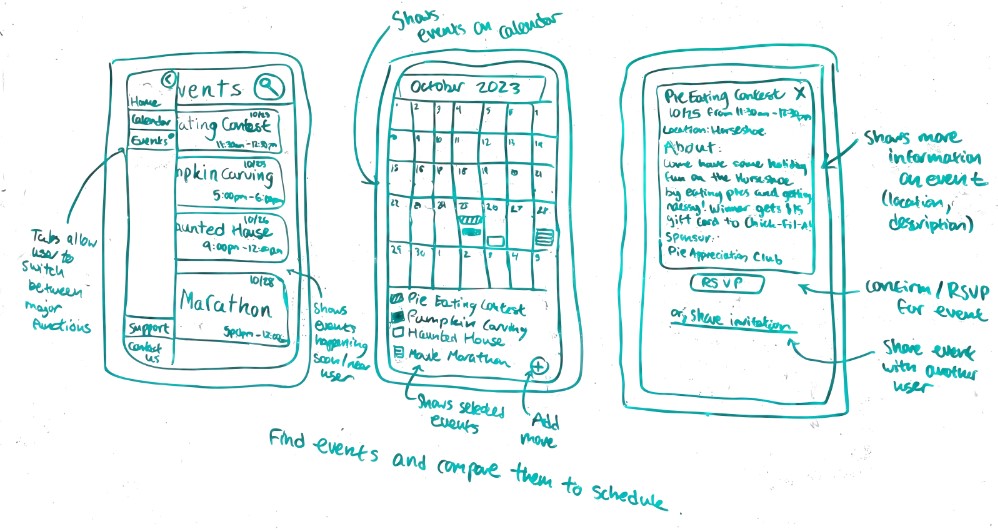 Shows
events on calendar
vents
Home
Calendar
Events
10/25
ating Contest
11:30am-12:30pm
10/25
mpkin Carving
5:00pm-6:00pm
10/26
aunted House
9:00pm-12:00am
10/28
Marathon
5:00pm-12:00am
Support
Contact
us
Tabs allow
user to
switch
between
major
functions
Shows
events
happening
soon/near
user
October 2023
1 2 3 4 5 6 7
15 16 17 18 19 20 21
22 23 24 25 26 27 28
29 30 1 2 3 4 5
Pie Eating Contest
Pumpkin Carving
Haunted House
Movie Marathon
+
Shows selected
events
Add
more
Pie Eating Contest X
10/25 from 11:30am-12:30pm
Location: Horseshoe
About:
Come have some holiday
fun on the Horseshoe
by eating pies and getting
messy! Winner gets $15
gift card to Chick-Fil-A!
Sponsor:
Pie Appreciation Club
RSVP
or, share invitation
Shows more
information
on event
(location,
description)
Confirm / RSVP
for event
Share event
with another
user
Find events and compare them to schedule